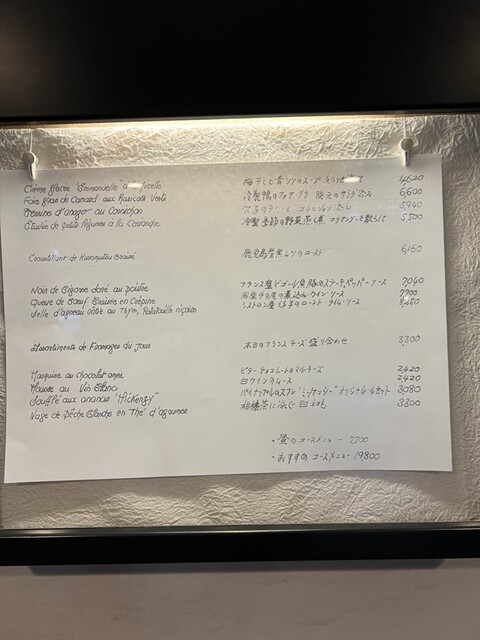 Crème glacée "Emmanuelle" ficelle 梅干しと青シソのスープ 4620
Foie Gras de Canard aux Haricots Verts 冷製鴨のフォアグラ 隠元のサラダ添え 6,600
Terrine d'anago au Cornichon 穴子のテリーヌ コルニション 5940
Etuvée de petits légumes à la Coriandre 冷製季節の野菜煮 コリアンダーを散らして 5,500
Croustillant de Kuromutsu Braisé 鹿児島産黒ムツのロースト 6,160
Noix de Bigorre doré au poivre フランス産ビゴール黒豚のステーキ、ペッパーソース 7,040
Queue de Boeuf Braisée en Crépine 国産牛の尾の煮込み・ワイン・ソース 7,700
Selle d'agneau rôtie au Thym, Ratatouille niçoise シストロン産仔羊のロースト・タイム・ソース
Assortiments de Fromages du Jour 本日のフランスチーズ盛り合わせ 3,300
Marquise au chocolat amer ビターチョコレートのマルキーズ 2,420
Mousse au Vin Blanc 白ワインのムース 2,420
Soufflé aux ananas "Mickenzy" パイナップルのスフレ "ミッケンジー" オリジナル 3,080
Nage de Pêche Blanche en Thé d'agrumes 柑橘茶に泳ぐ白桃 3,300
・昼のコースメニュー 7,700
・おすすめコースメニュー 19800